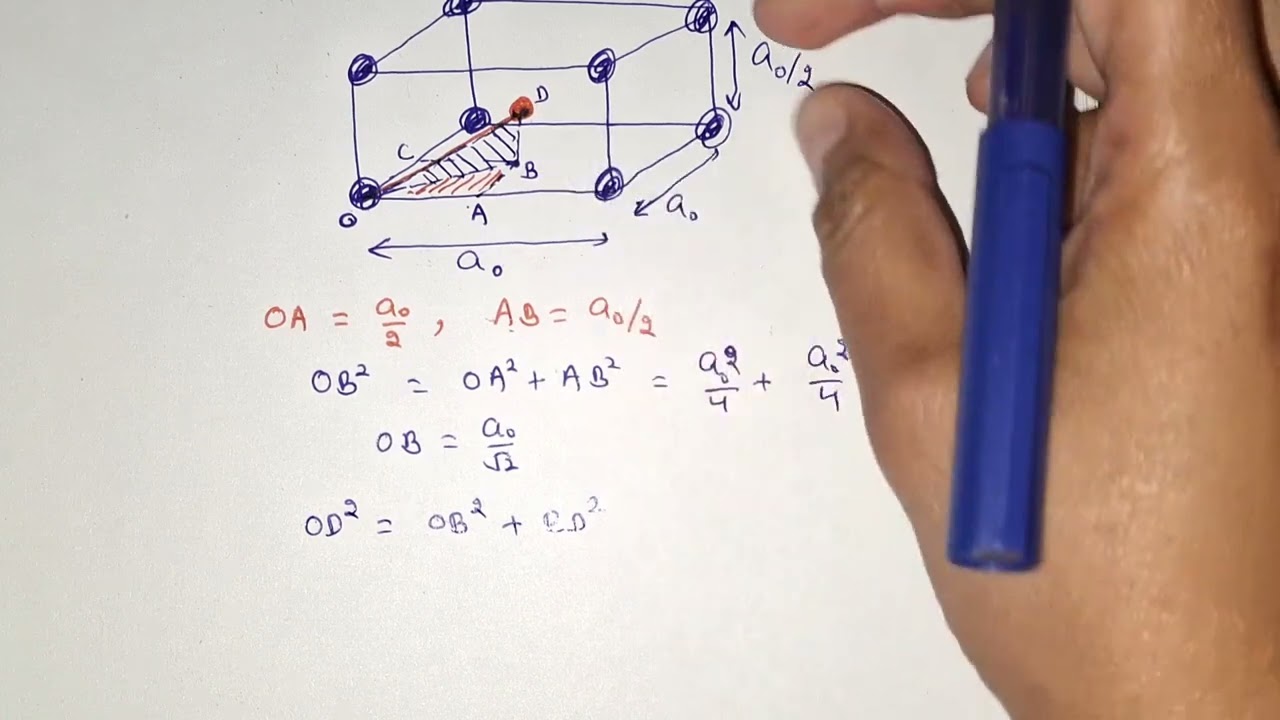 a₀/2
D
C
B
A
O
a₀
a₀
OA = a₀/2 , AB = a₀/2
OB² = OA² + AB² = a₀²/4 + a₀²/4
OB = a₀/√2
OD² = OB² + BD²